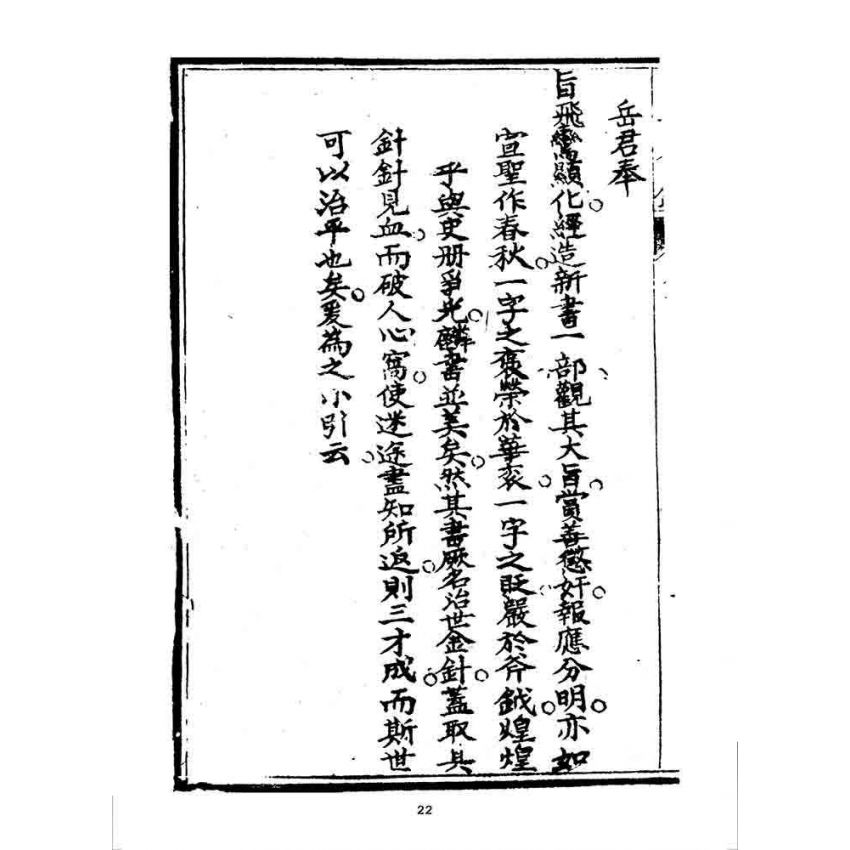 岳君奉
旨飛鸞顯化經造新書一部觀其大旨賞善懲奸報應分明亦如
宣聖作春秋一字之褒榮於華衮一字之貶嚴於斧鉞煌煌
乎與史册爭光麟書並美矣然其書厥名治世金針蓋取其
針針見血而破人心窩使迷途盡知所返則三才成而斯世
可以治平也矣爰為之小引云
22